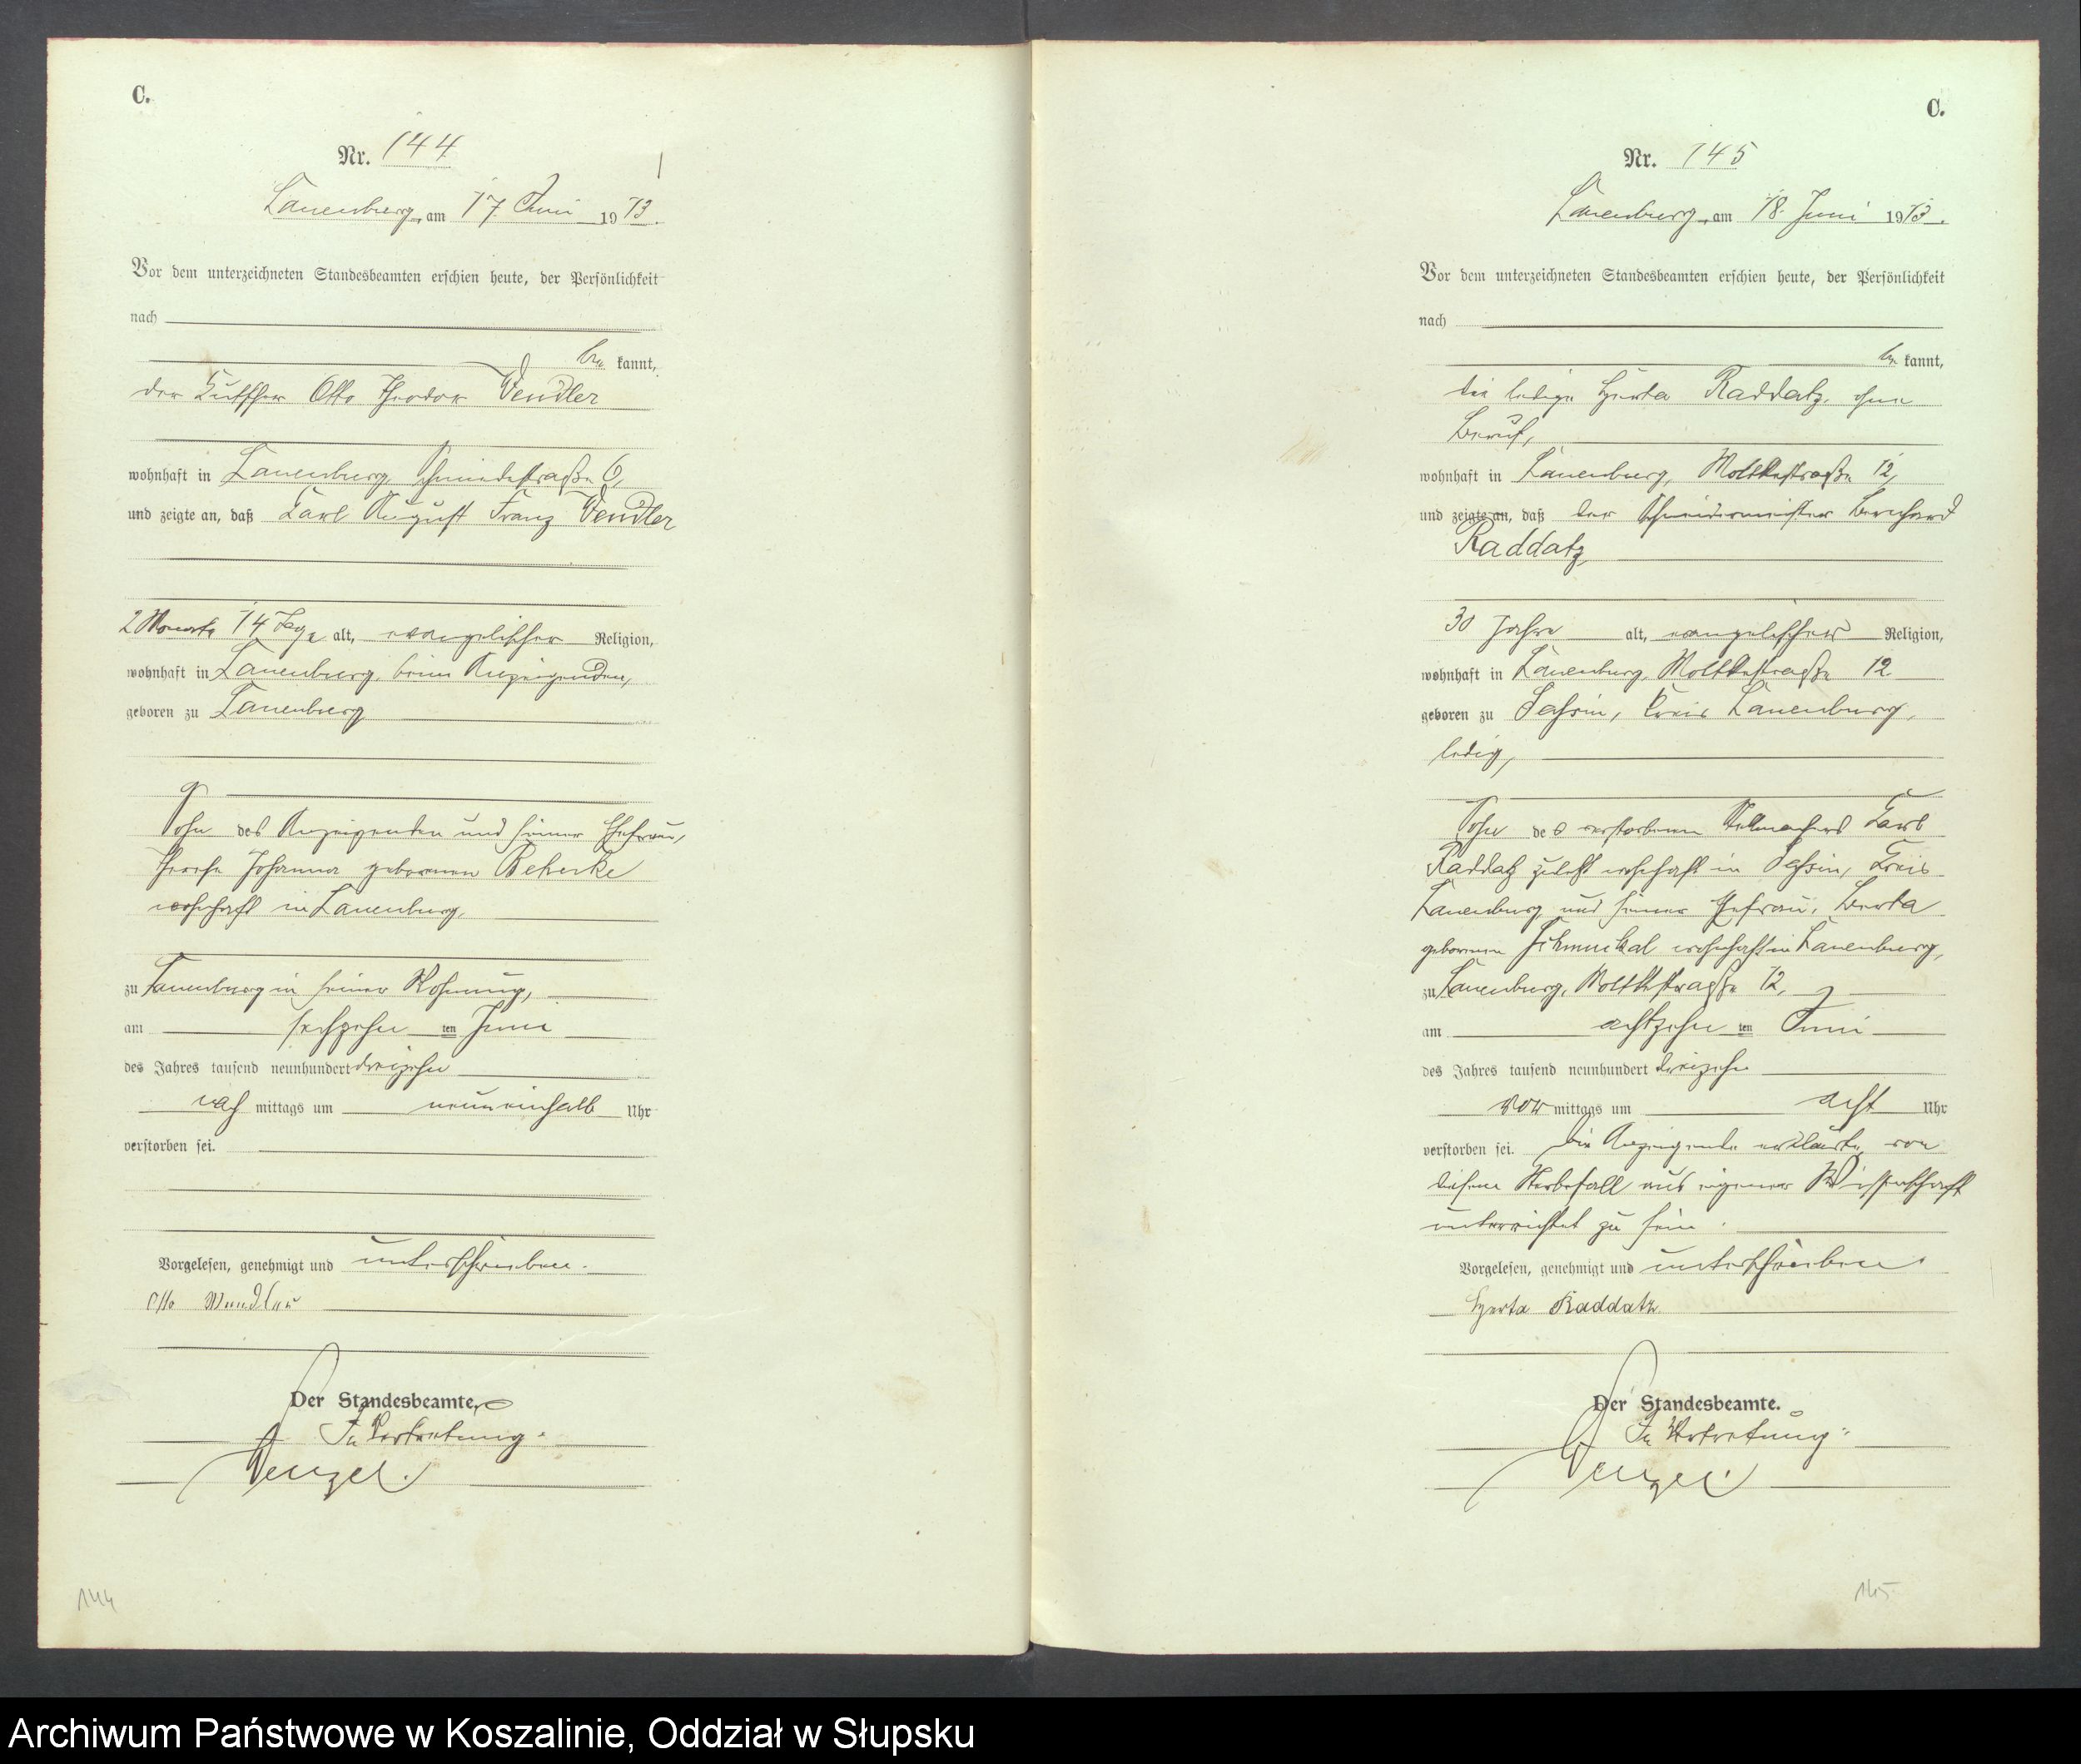 C.
Nr. 144
Lauenburg, am 17. Juni 1913.
Vor dem unterzeichneten Standesbeamten erschien heute, der Persönlichkeit
nach
be kannt,
der Kutscher Otto Theodor Wendler
wohnhaft in Lauenburg, Schmiedestraße 6,
und zeigte an, daß Karl August Franz Wendler
2 Monate 14 Tage alt, evangelischer Religion,
wohnhaft in Lauenburg, beim Anzeigenden,
geboren zu Lauenburg
Sohn des Anzeigenden und seiner Ehefrau,
Johanna geborenen
wohnhaft in Lauenburg,
zu Lauenburg in seiner Wohnung,
am sechzehn ten Juni
des Jahres tausend neunhundert dreizehn
nach mittags um neuneinhalb Uhr
verstorben sei.
Vorgelesen, genehmigt und unterschrieben.
Otto Wendler
Der Standesbeamte.
In Vertretung.
Wenzel.
144
C.
Nr. 145
Lauenburg, am 18. Juni 1913.
Vor dem unterzeichneten Standesbeamten erschien heute, der Persönlichkeit
nach
be kannt,
die ledige Herta Raddatz, ohne
Beruf,
wohnhaft in Lauenburg, Moltkestraße 12,
und zeigte an, daß der Schneidermeister Bernhard
Raddatz
30 Jahre alt, evangelischer Religion,
wohnhaft in Lauenburg, Moltkestraße 12
geboren zu Sassin, Kreis Lauenburg,
ledig,
Sohn des verstorbenen Stellmachers Karl
Raddatz zuletzt wohnhaft in Sassin, Kreis
Lauenburg und seiner Ehefrau, Berta
geborenen Schmuckal wohnhaft in Lauenburg,
zu Lauenburg, Moltkestraße 12,
am achtzehn ten Juni
des Jahres tausend neunhundert dreizehn
vor mittags um acht Uhr
verstorben sei. Die Anzeigende erklärte, von
diesem Sterbefall aus eigener Wissenschaft
unterrichtet zu sein.
Vorgelesen, genehmigt und unterschrieben.
Herta Raddatz
Der Standesbeamte.
In Vertretung:
Wenzel.
145
Archiwum Państwowe w Koszalinie, Oddział w Słupsku